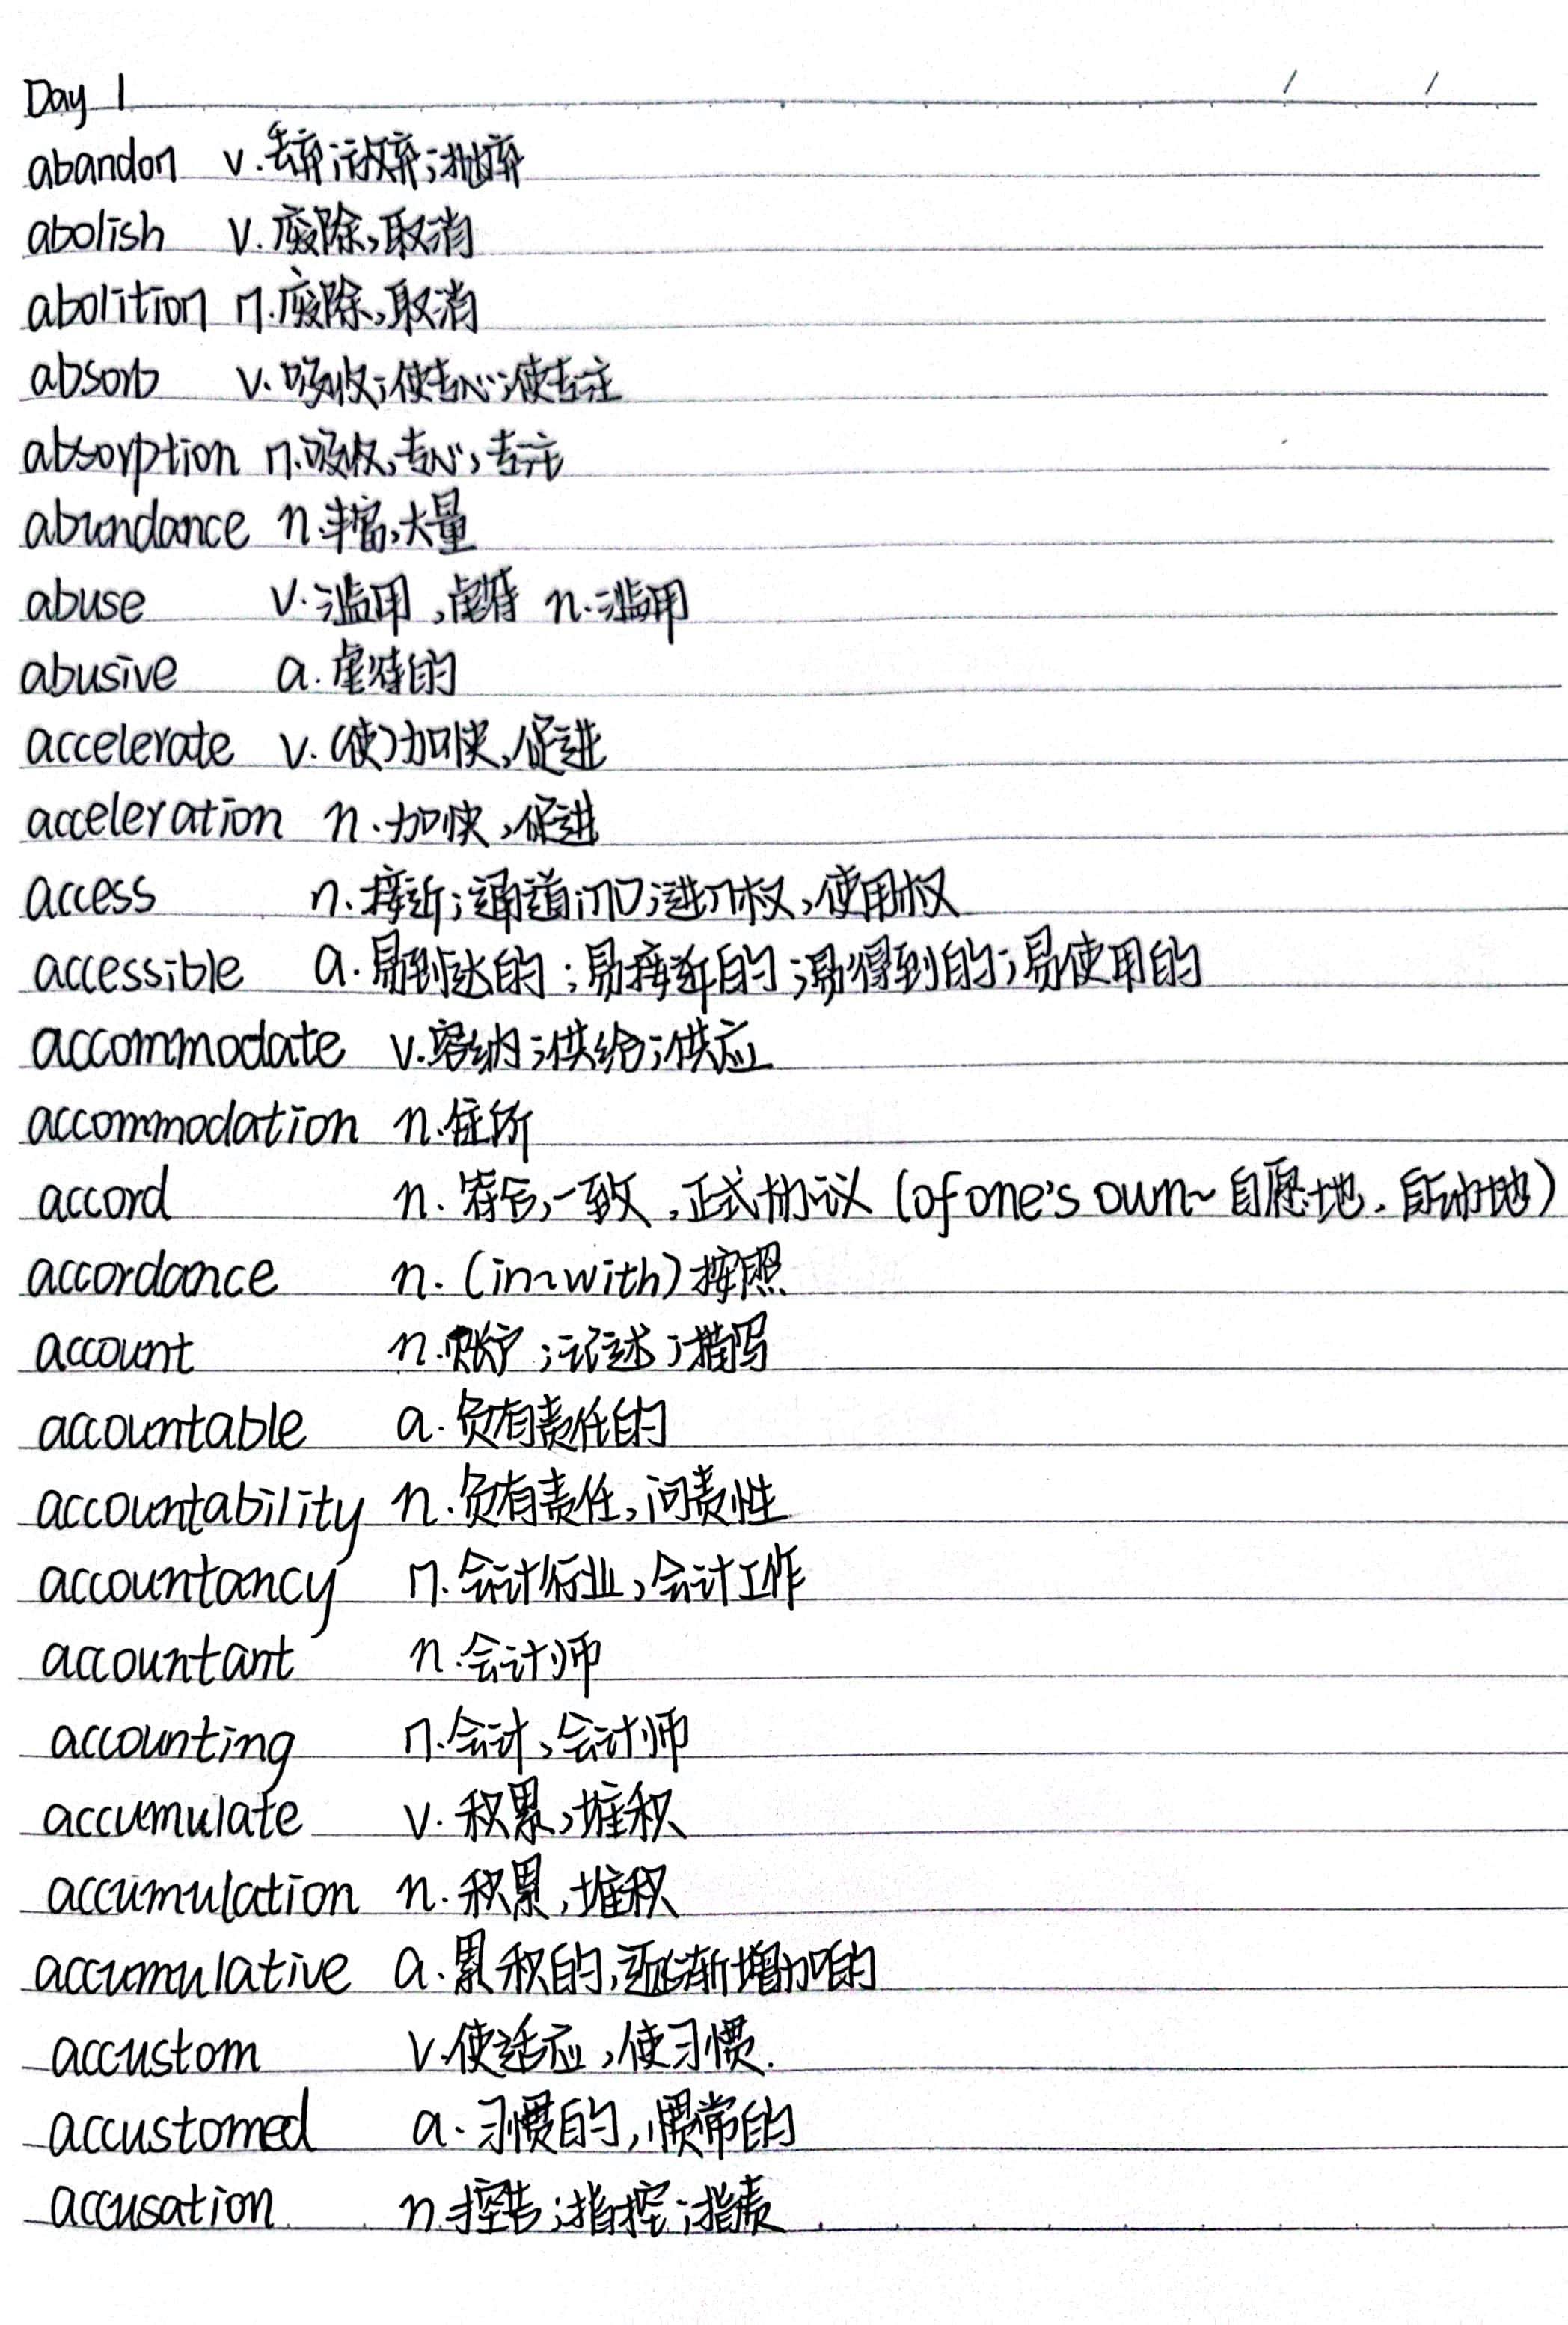 Day 1
abandon v.丢弃;放弃;抛弃
abolish v.废除,取消
abolition n.废除,取消
absorb v.吸收;使专心;使专注
absorption n.吸收,专心,专注
abundance n.丰富,大量
abuse v.滥用,虐待 n.滥用
abusive a.虐待的
accelerate v.(使)加快,促进
acceleration n.加快,促进
access n.接近;通道;入口;进入权,使用权
accessible a.易到达的;易接近的;易得到的;易使用的
accommodate v.容纳;供给;供应
accommodation n.住所
accord n.符合,一致,正式协议(of one's own~自愿地,自动地)
accordance n.(in~with)按照
account n.账户;记述;描写
accountable a.负有责任的
accountability n.负有责任,问责性
accountancy n.会计行业,会计工作
accountant n.会计师
accounting n.会计,会计师
accumulate v.积累,堆积
accumulation n.积累,堆积
accumulative a.累积的,逐渐增加的
accustom v.使适应,使习惯.
accustomed a.习惯的,惯常的
accusation n.控告;指控;指责